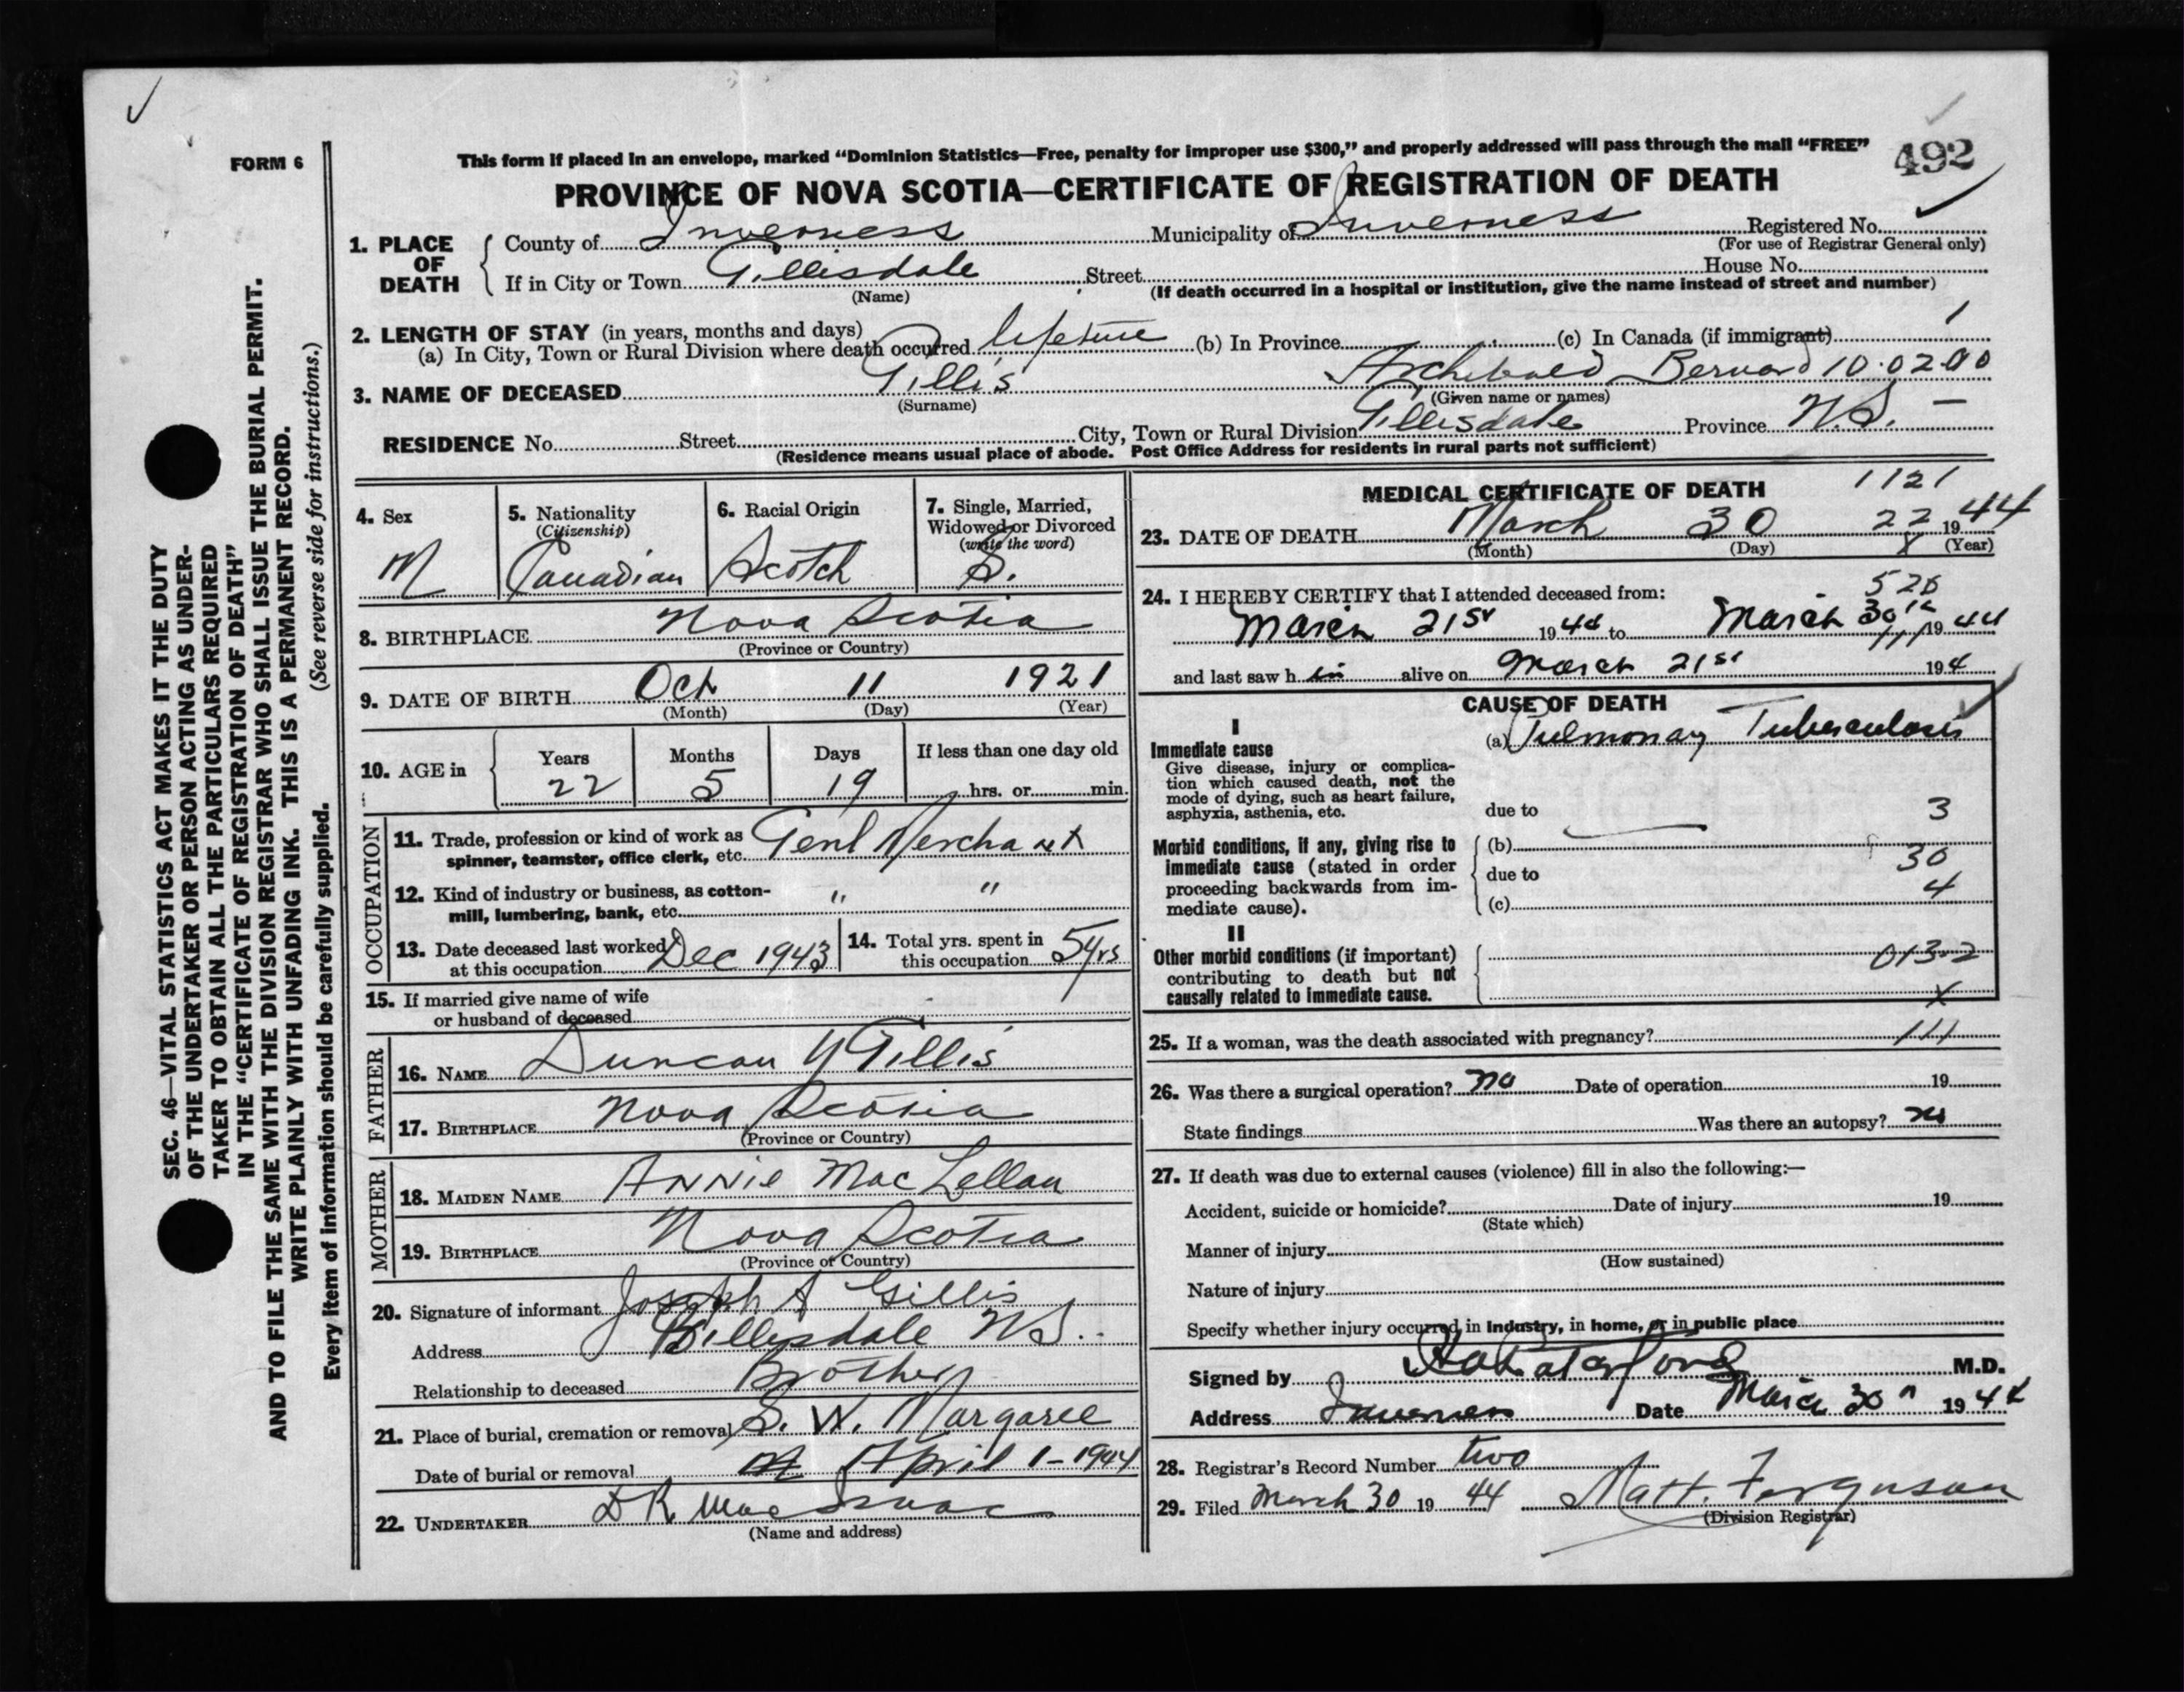 FORM 6
This form if placed in an envelope, marked "Dominion Statistics—Free, penalty for improper use $300," and properly addressed will pass through the mail "FREE"
492
PROVINCE OF NOVA SCOTIA—CERTIFICATE OF REGISTRATION OF DEATH
SEC. 46—VITAL STATISTICS ACT MAKES IT THE DUTY
OF THE UNDERTAKER OR PERSON ACTING AS UNDER-
TAKER TO OBTAIN ALL THE PARTICULARS REQUIRED
IN THE "CERTIFICATE OF REGISTRATION OF DEATH"
AND TO FILE THE SAME WITH THE DIVISION REGISTRAR WHO SHALL ISSUE THE BURIAL PERMIT.
WRITE PLAINLY WITH UNFADING INK. THIS IS A PERMANENT RECORD.
Every item of information should be carefully supplied. (See reverse side for instructions.)
1. PLACE OF DEATH County of Inverness Municipality of Inverness Registered No.
(For use of Registrar General only)
If in City or Town Gillisdale Street House No.
(Name) (If death occurred in a hospital or institution, give the name instead of street and number)
2. LENGTH OF STAY (in years, months and days) 1
(a) In City, Town or Rural Division where death occurred lifetime (b) In Province (c) In Canada (if immigrant)
3. NAME OF DECEASED Gillis Archibald Bernard 10-02-00
(Surname) (Given name or names)
RESIDENCE No. Street City, Town or Rural Division Gillisdale Province N.S. —
(Residence means usual place of abode. Post Office Address for residents in rural parts not sufficient)
4. Sex 5. Nationality 6. Racial Origin 7. Single, Married,
(Citizenship) Widowed or Divorced
(write the word)
M Canadian Scotch S.
8. BIRTHPLACE Nova Scotia
(Province or Country)
9. DATE OF BIRTH Oct 11 1921
(Month) (Day) (Year)
10. AGE in Years Months Days If less than one day old
22 5 19 hrs. or min.
OCCUPATION
11. Trade, profession or kind of work as
spinner, teamster, office clerk, etc. Genl Merchant
12. Kind of industry or business, as cotton-
mill, lumbering, bank, etc. " "
13. Date deceased last worked
at this occupation Dec 1943
14. Total yrs. spent in
this occupation 5 yrs
15. If married give name of wife
or husband of deceased
FATHER
16. NAME Duncan Y Gillis
17. BIRTHPLACE Nova Scotia
(Province or Country)
MOTHER
18. MAIDEN NAME Annie MacLellan
19. BIRTHPLACE Nova Scotia
(Province or Country)
20. Signature of informant Joseph A Gillis
Address Gillisdale N.S.
Relationship to deceased Brother
21. Place of burial, cremation or removal S. W. Margaree
Date of burial or removal April 1-1944
22. UNDERTAKER D R. MacIsaac
(Name and address)
MEDICAL CERTIFICATE OF DEATH 1121
23. DATE OF DEATH March 30 22 1944
(Month) (Day) X (Year)
24. I HEREBY CERTIFY that I attended deceased from: 526
March 21st 1944 to March 30th 1944
111
and last saw h im alive on March 21st 194
CAUSE OF DEATH
I
Immediate cause
Give disease, injury or complica-
tion which caused death, not the
mode of dying, such as heart failure,
asphyxia, asthenia, etc.
(a) Pulmonary Tuberculosis
due to 3
Morbid conditions, if any, giving rise to
immediate cause (stated in order
proceeding backwards from im-
mediate cause).
(b)
due to 30
4
(c)
II
Other morbid conditions (if important)
contributing to death but not
causally related to immediate cause.
013-2
X
25. If a woman, was the death associated with pregnancy? 111
26. Was there a surgical operation? no Date of operation 19
State findings Was there an autopsy? no
27. If death was due to external causes (violence) fill in also the following:—
Accident, suicide or homicide? Date of injury 19
(State which)
Manner of injury
(How sustained)
Nature of injury
Specify whether injury occurred in industry, in home, or in public place
Signed by M.D.
Address Inverness Date March 30th 1944
28. Registrar's Record Number two
29. Filed March 30 1944 Matt. Ferguson
(Division Registrar)